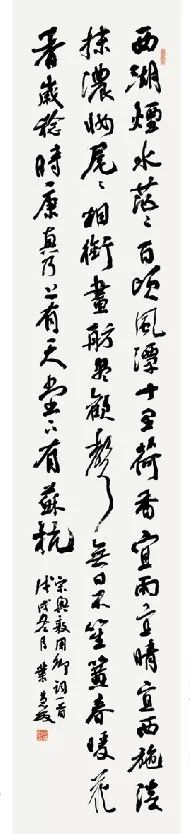 西湖煙水茫々百頃風潭十里荷香宜雨宜晴宜西施淡
抹濃妝尾々相銜畫舫盡歡聲無日不笙簧春暖花
香歲稔時康真乃上有天堂下有蘇杭
宋奧敦周卿詞一首
戊戌冬月